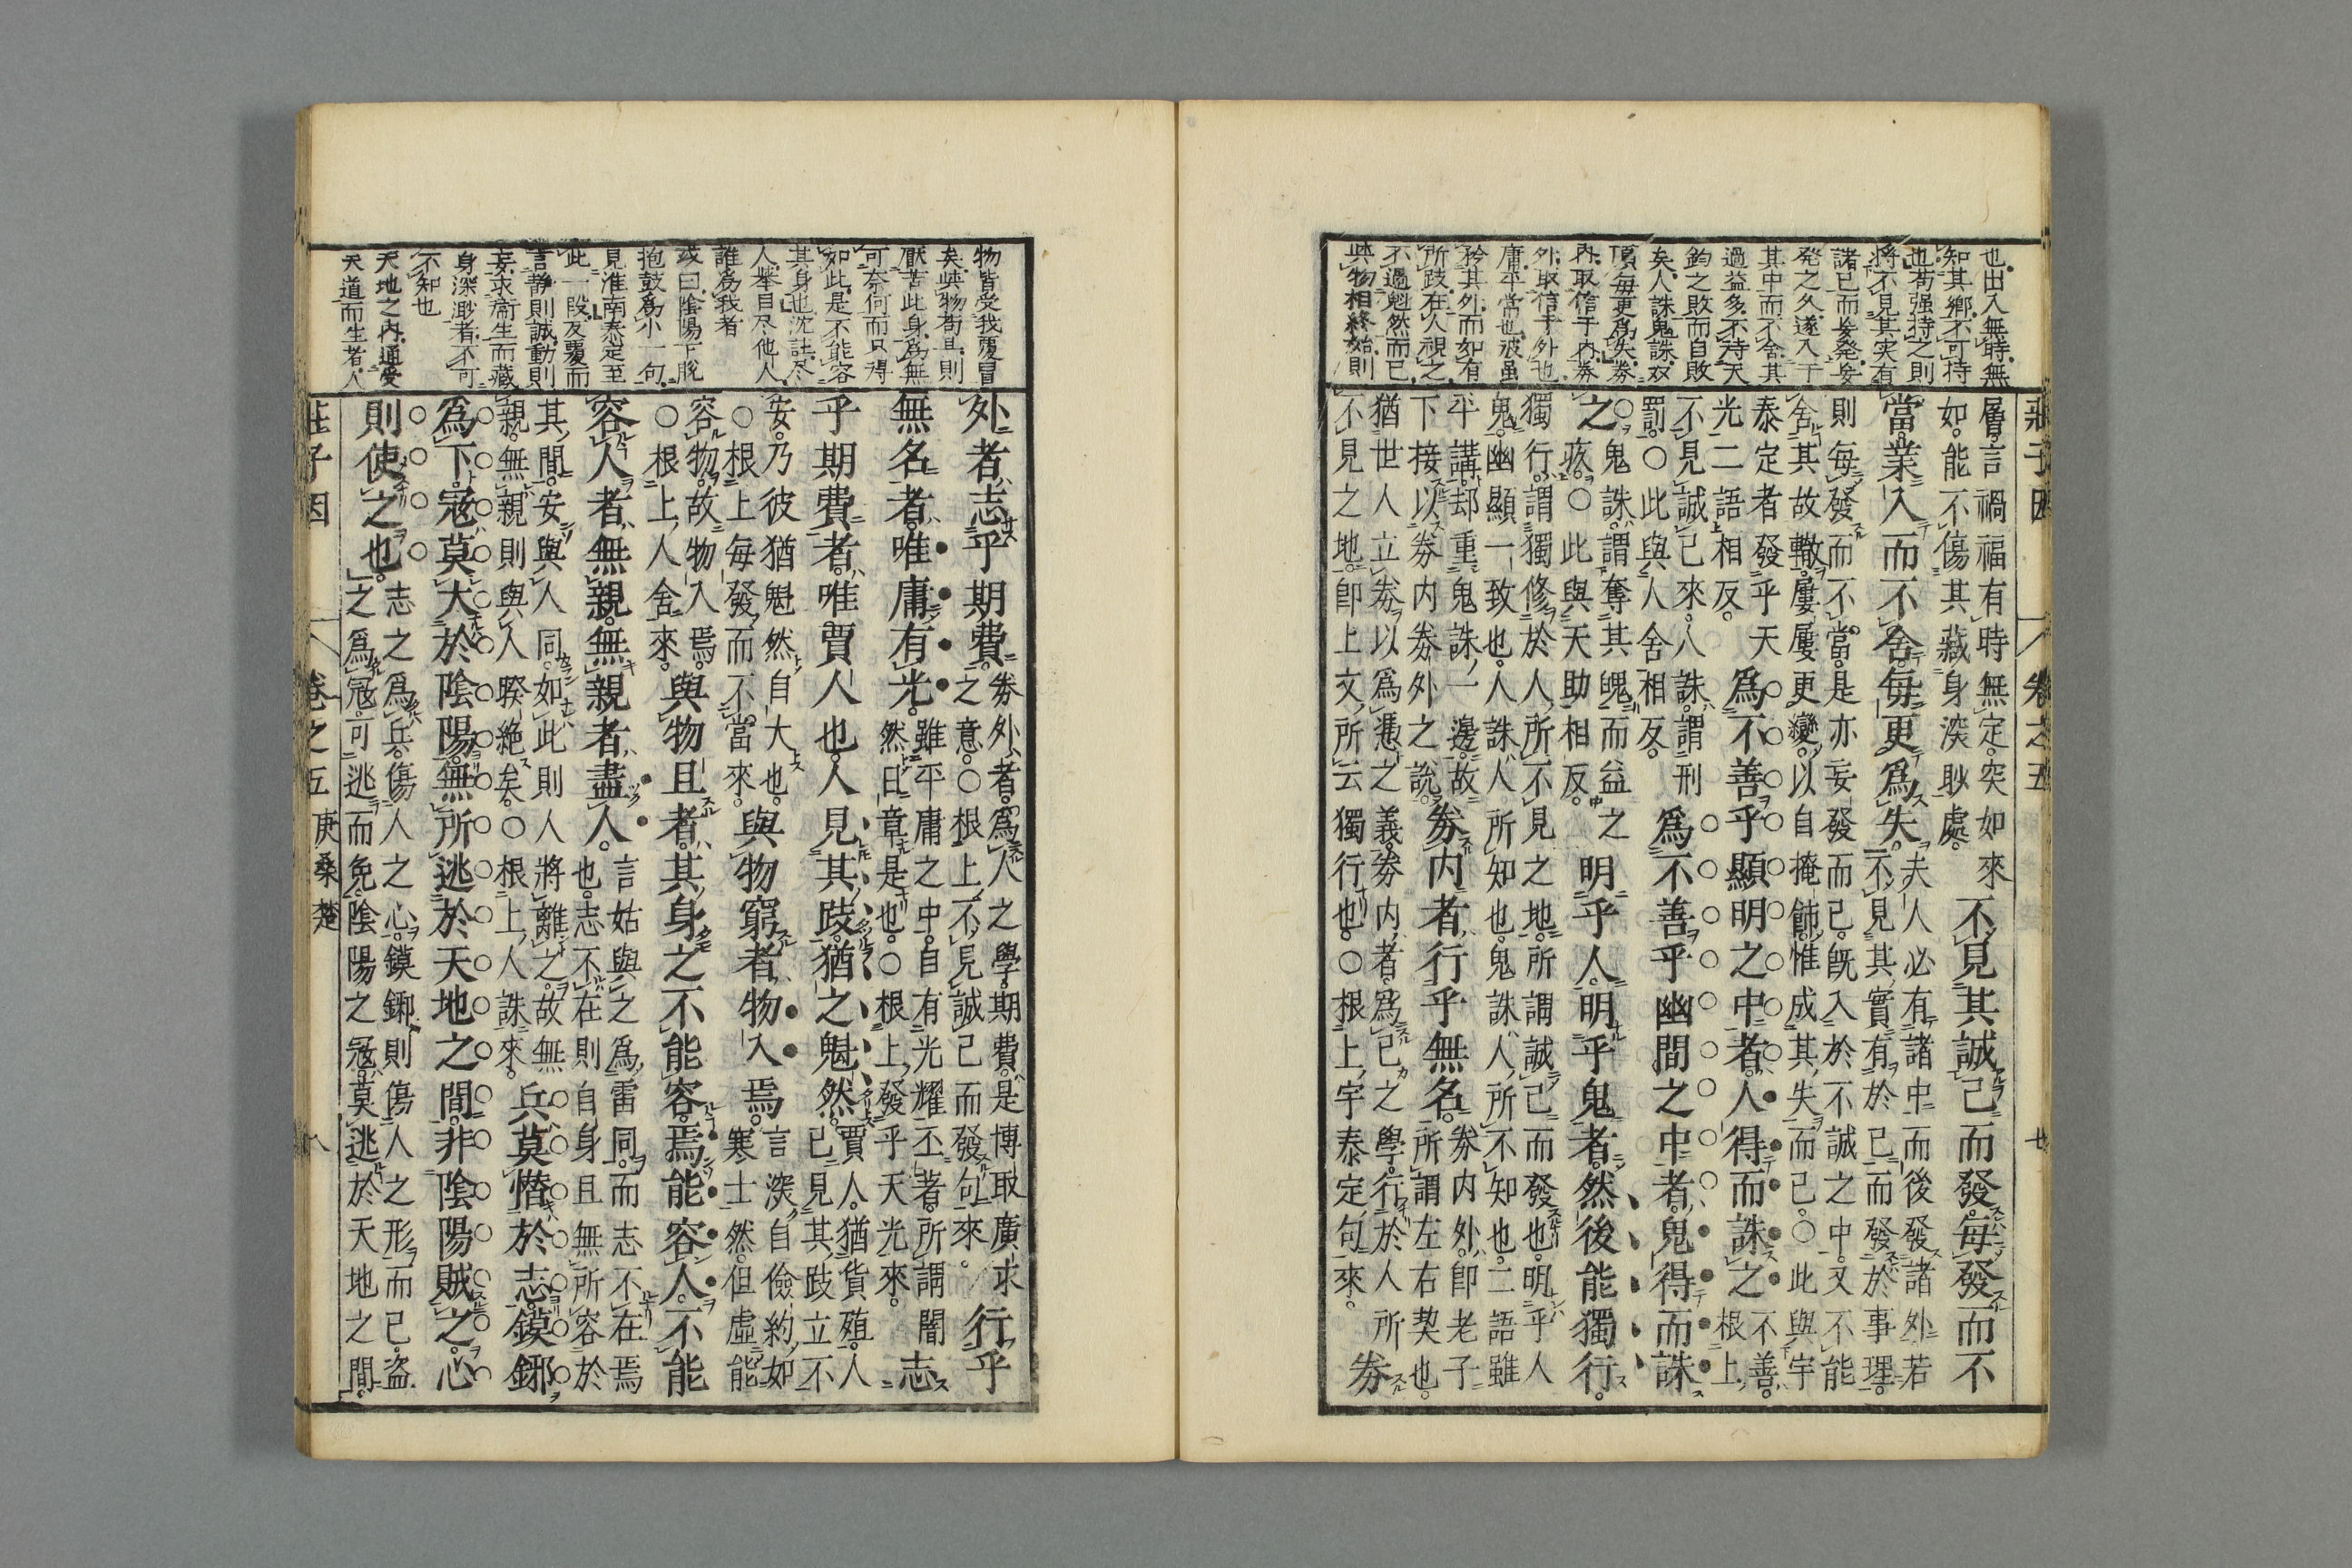 莊子因 卷之五 廿
也出入無時無
知其郷不可持
也苟强持之則
將不見其実有
諸己而妄発妄
発之久遂入于
其中而不舍其
過益多不待天
鈞之敗而自敗
矣人誅鬼誅双
頂毎更爲失券
内取信于内券
外取信于外也
庸平常也彼虽
矜其外而如有
所跂在人視之
不過魁然而已
與物相終始則
層言禍福有時無定突如來
如能不傷其藏身深耿處
不見其誠己而發毎發而不
當業入而不舍毎更爲失
夫人必有諸中而後發諸外若
不見其實有於己而發於事理
則毎發而不當是亦妄發而已既入於不誠之中又不能
舍其故轍屢屢更變以自掩飾惟成其失而已○此與宇
泰定者發乎天
光二語相反
爲不善乎顯明之中者人得而誅之
不善
根上
不見誠己來人誅謂刑
罰○此與人舍相反
爲不善乎幽間之中者鬼得而誅
之
鬼誅謂奪其魄而益之
疾○此與天助相反
明乎人明乎鬼者然後能獨行
獨行謂獨修於人所不見之地所謂誠己而發也明乎人
鬼幽顯一致也人誅人所知也鬼誅人所不知也二語雖
平講却重鬼誅一邊故
下接以券内券外之說
券内者行乎無名
券内外即老子
所謂左右契也
猶世人立券以爲憑之義券内者爲己之學行於人所
不見之地即上文所云獨行也○根上宇泰定句來
券
物皆受我覆冒
矣與物苟且則
厭苦此身爲無
可奈何而只得
如此是不能容
其身也沈註尽
人挙目尽他人
誰爲我者
或曰陰陽下脫
抱鼓爲小一句
見淮南泰定至
此一段反覆而
言静則誠動則
妄求衞生而藏
身深渺者不可
不知也
天地之内通受
天道而生者人
外者志乎期費
券外者爲人之學期費是博取廣求
之意○根上不見誠己而發句來
行乎
無名者唯庸有光
雖平庸之中自有光耀丕著所謂闇
然日章是也○根上發乎天光來
志
乎期費者唯賈人也人見其跂猶之魁然
賈人猶貨殖人
已見其跂立不
安乃彼猶魁然自大也
○根上毎發而不當來
與物窮者物入焉
言深自儉約如
寒士然但虛能
容物故物入焉
○根上人舍來
與物且者其身之不能容焉能容人不能
容人者無親無親者盡人
言姑與之爲雷同而志不在焉
也志不在則自身且無所容於
其間安與人同如此則人將離之故無
親無親則與人睽絶矣○根上人誅來
兵莫憯於志鏌鎁
爲下寇莫大於陰陽無所逃於天地之間非陰陽賊之心
則使之也
志之爲兵傷人之心鏌鎁則傷人之形而已盗
之爲寇可逃而免陰陽之寇莫逃於天地之間
莊子因 卷之五 庚桑楚 八